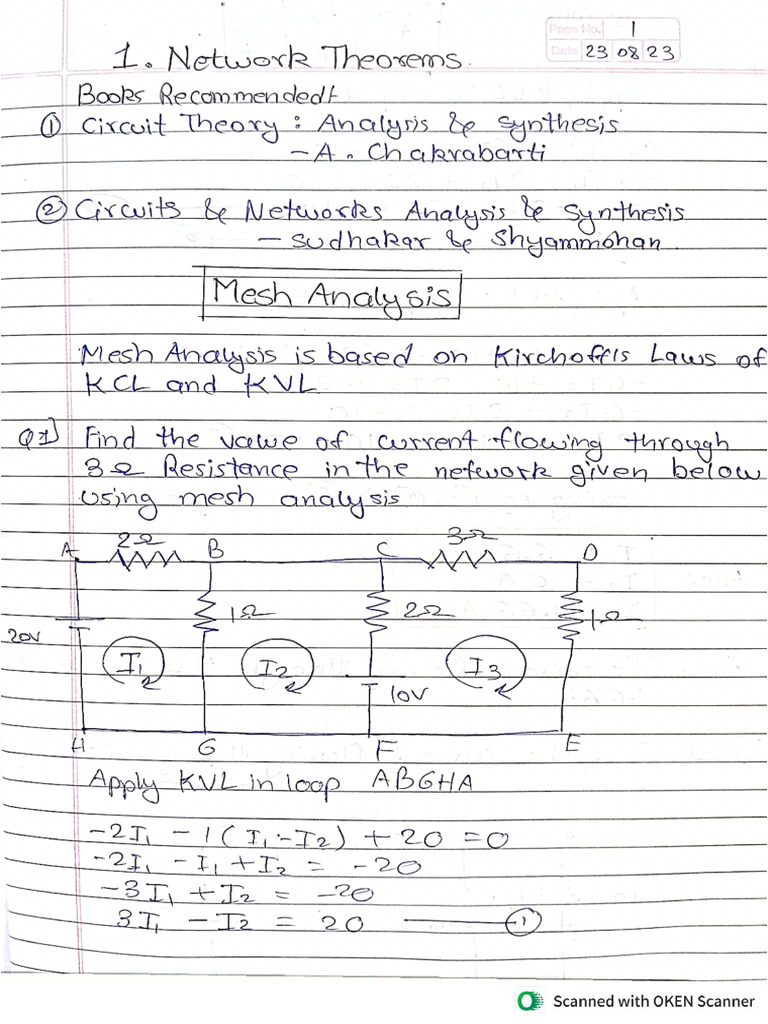 Page No. 1
Date 23 08 23
1. Network Theorems.
Books Recommended:
① Circuit Theory : Analysis & Synthesis
- A. Chakrabarti
② Circuits & Networks Analysis & Synthesis
- Sudhakar & Shyammohan
Mesh Analysis
Mesh Analysis is based on Kirchoff's Laws of
KCL and KVL
Q1] Find the value of current flowing through
3Ω Resistance in the network given below
using mesh analysis
A 2Ω B C 3Ω D
1Ω 2Ω 1Ω
20V
I1 I2 I3
10V
H G F E
Apply KVL in loop ABGHA
-2I1 - 1(I1 - I2) + 20 = 0
-2I1 - I1 + I2 = -20
-3I1 + I2 = -20
3I1 - I2 = 20 ①
Scanned with OKEN Scanner